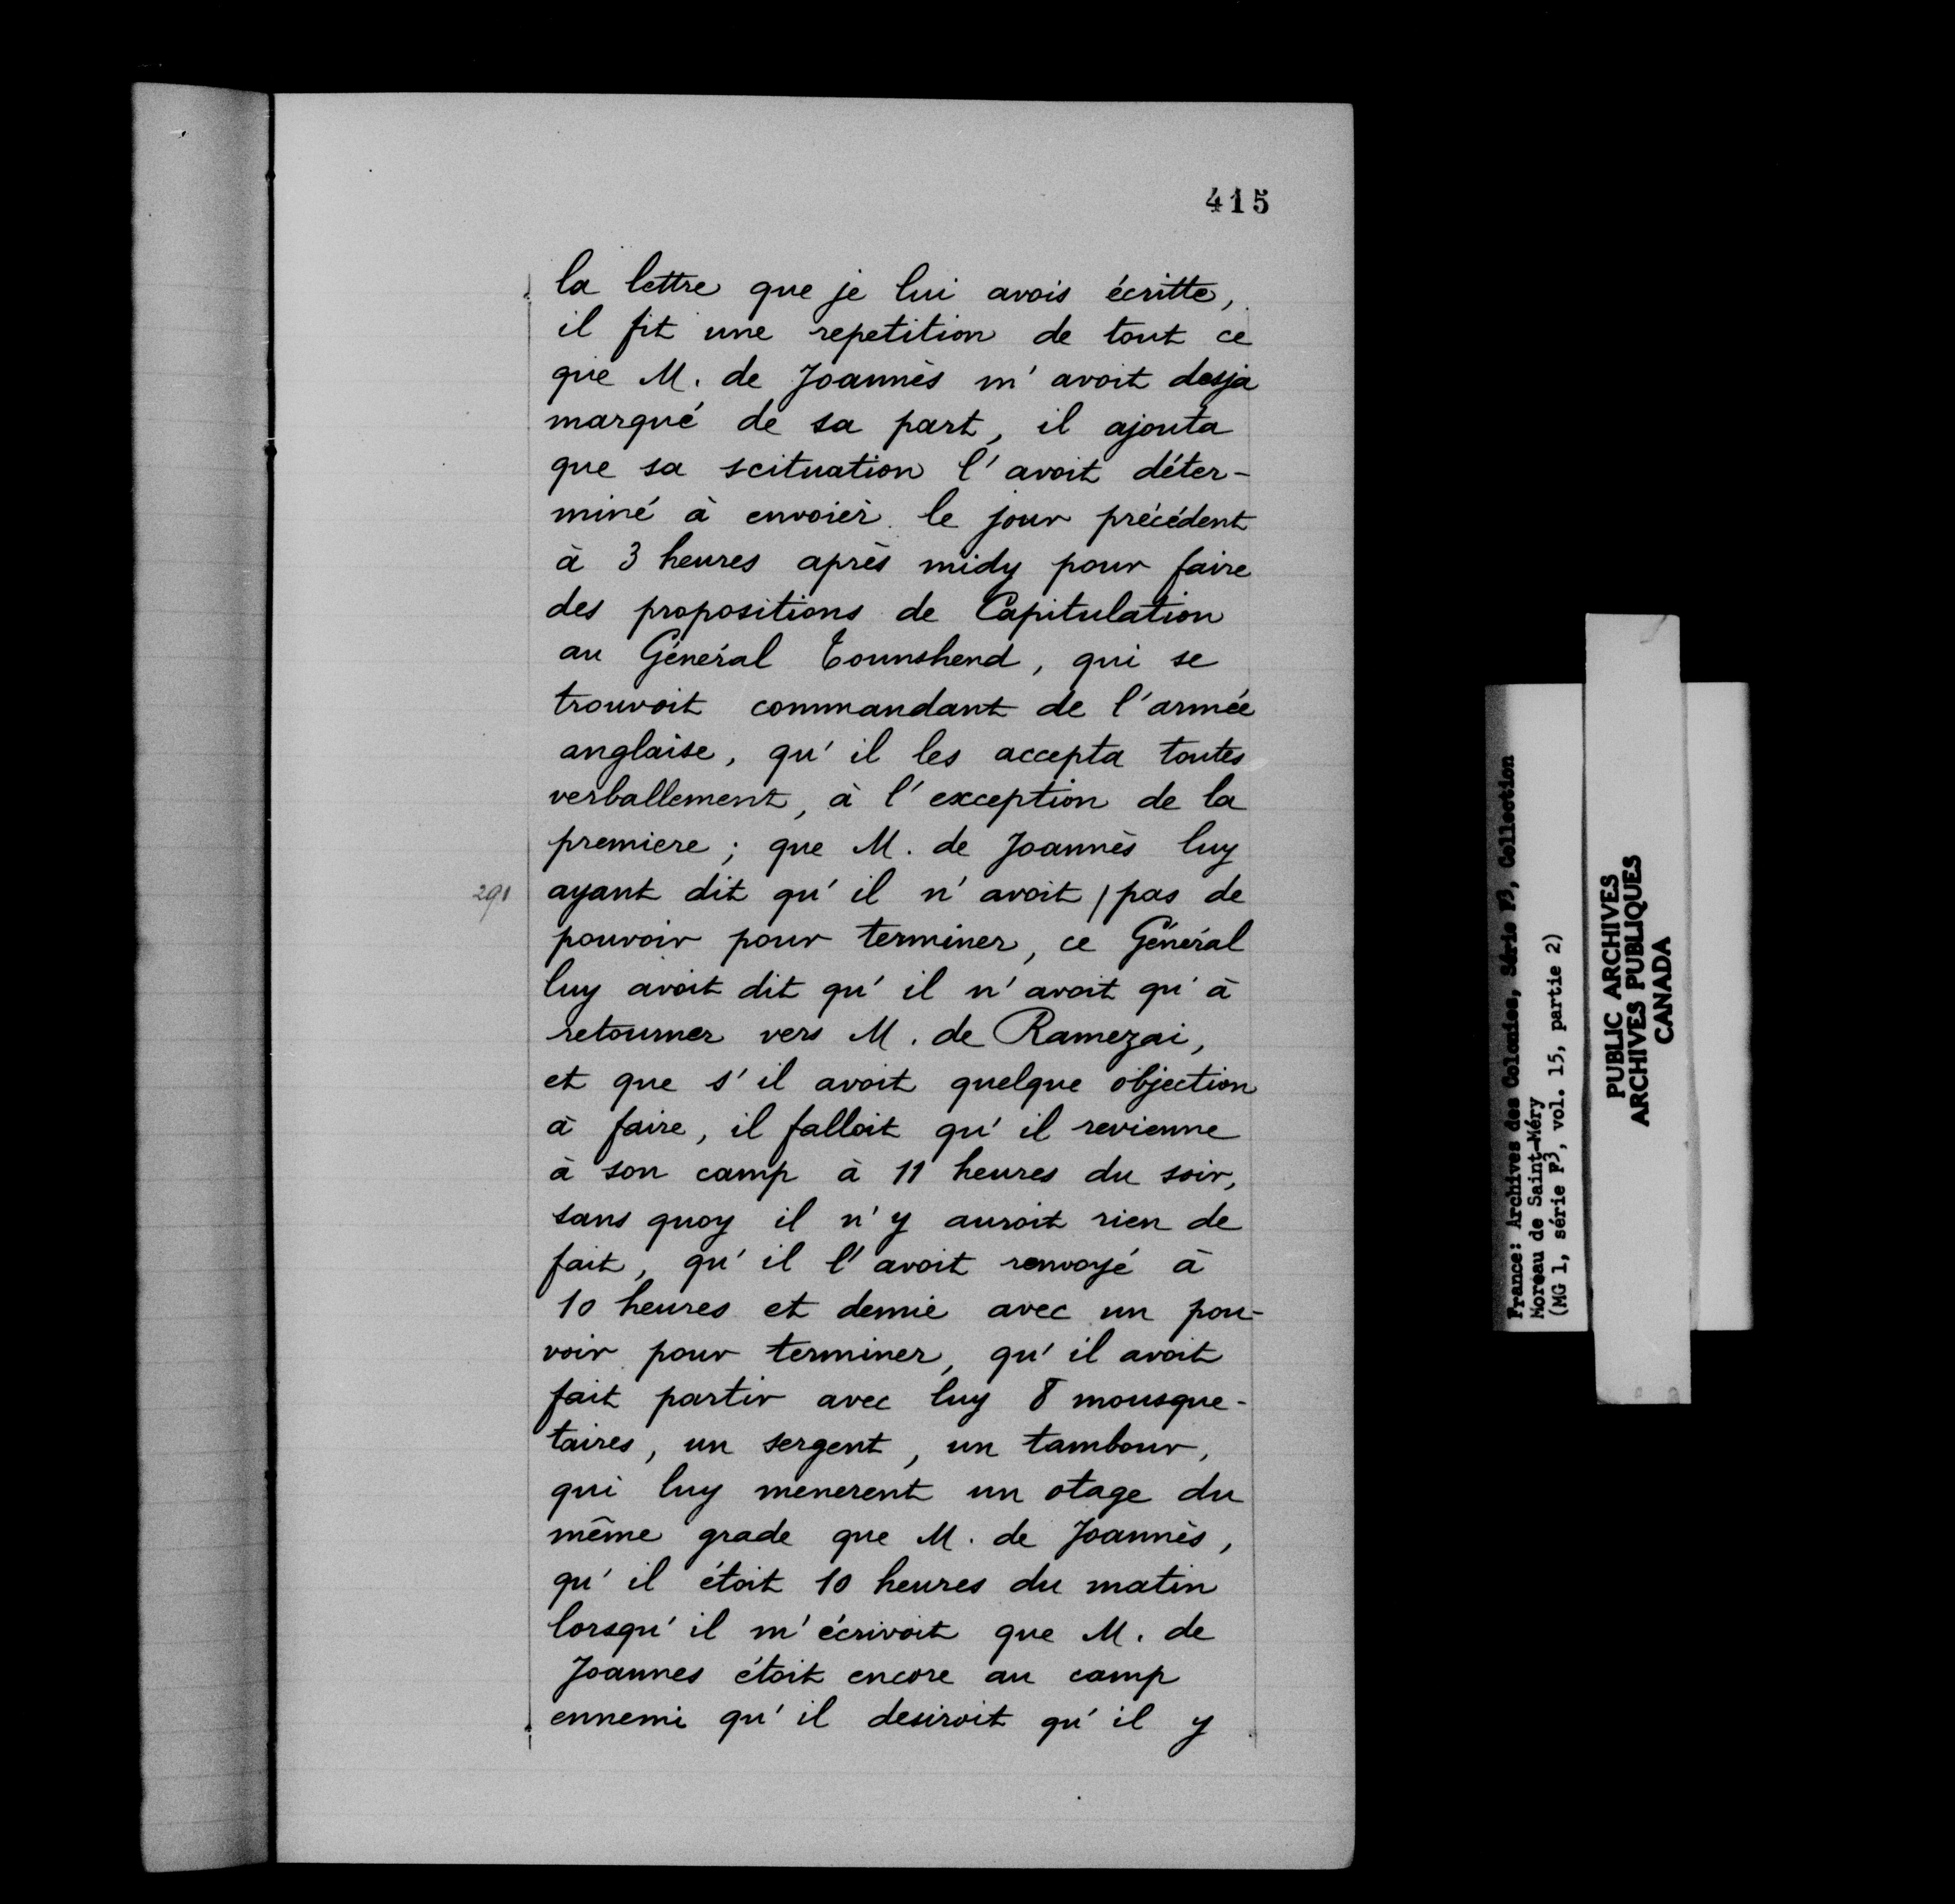 415
la lettre que je lui avois écritte,
il fit une repetition de tout ce
que M. de Joannès m'avoit desja
marqué de sa part, il ajouta
que sa scituation l'avoit déter-
miné à envoièr le jour précédent
à 3 heures après midy pour faire
des propositions de Capitulation
au Général Tounshend, qui se
trouvoit commandant de l'armée
anglaise, qu'il les accepta toutes
verballement, à l'exception de la
premiere ; que M. de Joannès luy
291 ayant dit qu'il n'avoit / pas de
pouvoir pour terminer, ce Général
luy avoit dit qu'il n'avoit qu'à
retourner vers M. de Ramezai,
et que s'il avoit quelque objection
à faire, il falloit qu'il revienne
à son camp à 11 heures du soir,
sans quoy il n'y auroit rien de
fait, qu'il l'avoit renvoyé à
10 heures et demie avec un pou-
voir pour terminer, qu'il avoit
fait partir avec luy 8 mousque-
taires, un sergent, un tambour,
qui luy menerent un otage du
même grade que M. de Joannès,
qu'il étoit 10 heures du matin
lorsqu'il m'écrivoit que M. de
Joannes étoit encore au camp
ennemi qu'il desiroit qu'il y
France: Archives des Colonies, Série F3, Collection
Moreau de Saint-Méry
(MG 1, série F3, vol. 15, partie 2)
PUBLIC ARCHIVES
ARCHIVES PUBLIQUES
CANADA